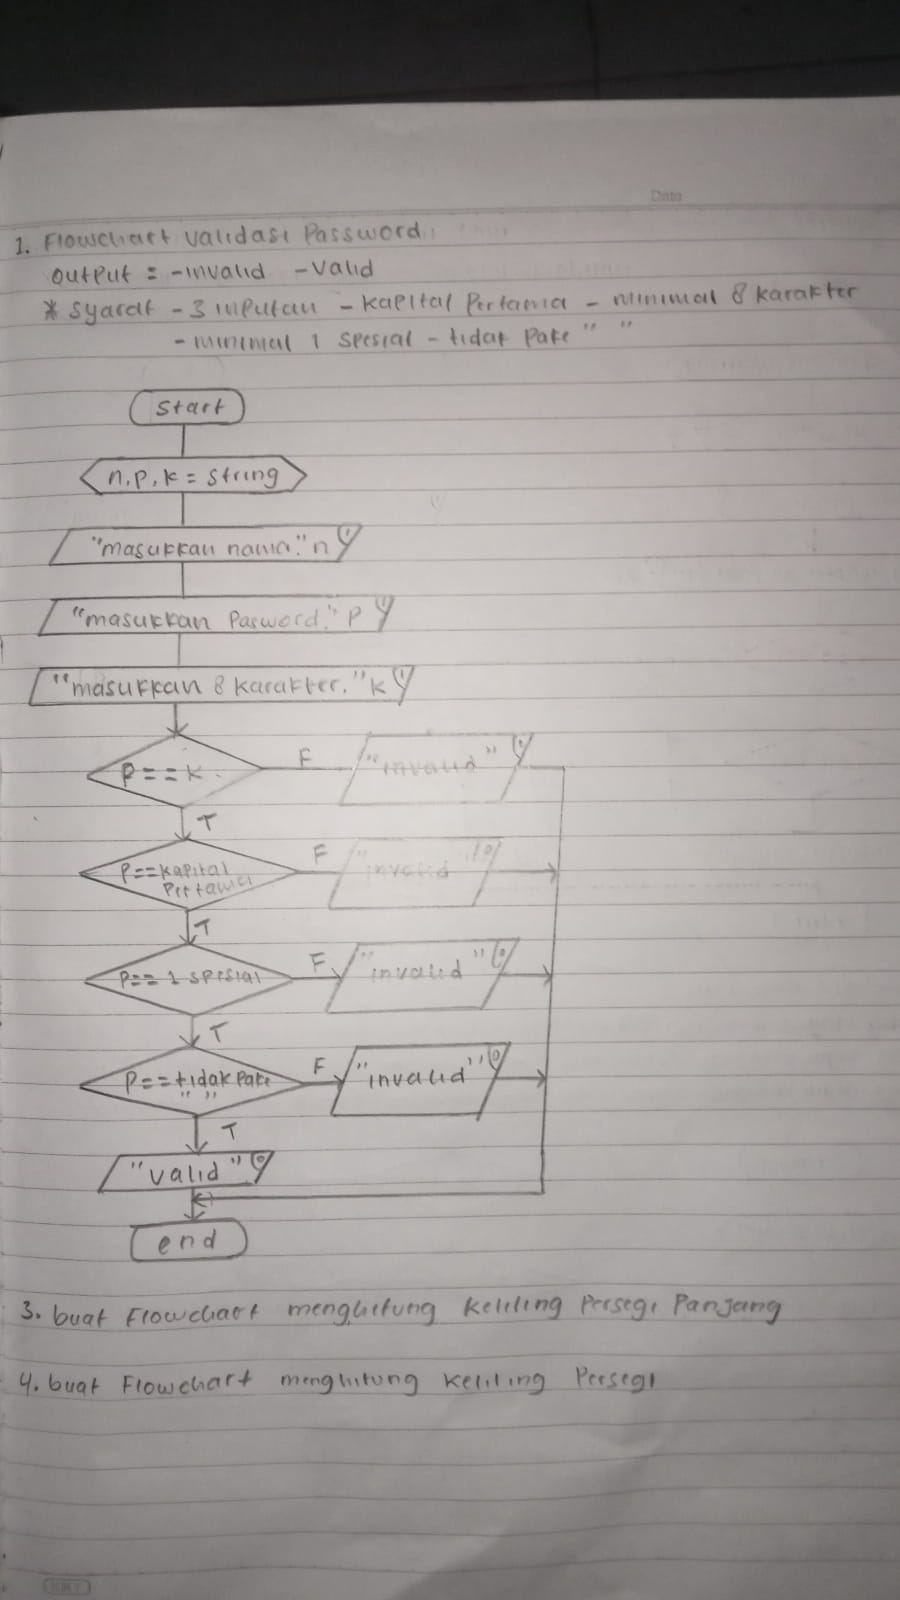 Date
1. Flowchart validasi Password
output = -invalid -valid
* syarat - 3 inputan - kapital Pertama - minimal 8 karakter
- minimal 1 spesial - tidak Pake " "
start
n, p, k = string
"masukkan nama." n
"masukkan Pasword." P
"masukkan 8 karakter." k
P==k F "invalid"
T
P==kapital Pertama F "invalid"
T
P== 1 spesial F "invalid"
T
P==tidak Pake " " F "invalid"
T
"valid"
end
3. buat Flowchart menghitung keliling Persegi Panjang
4. buat Flowchart menghitung keliling Persegi